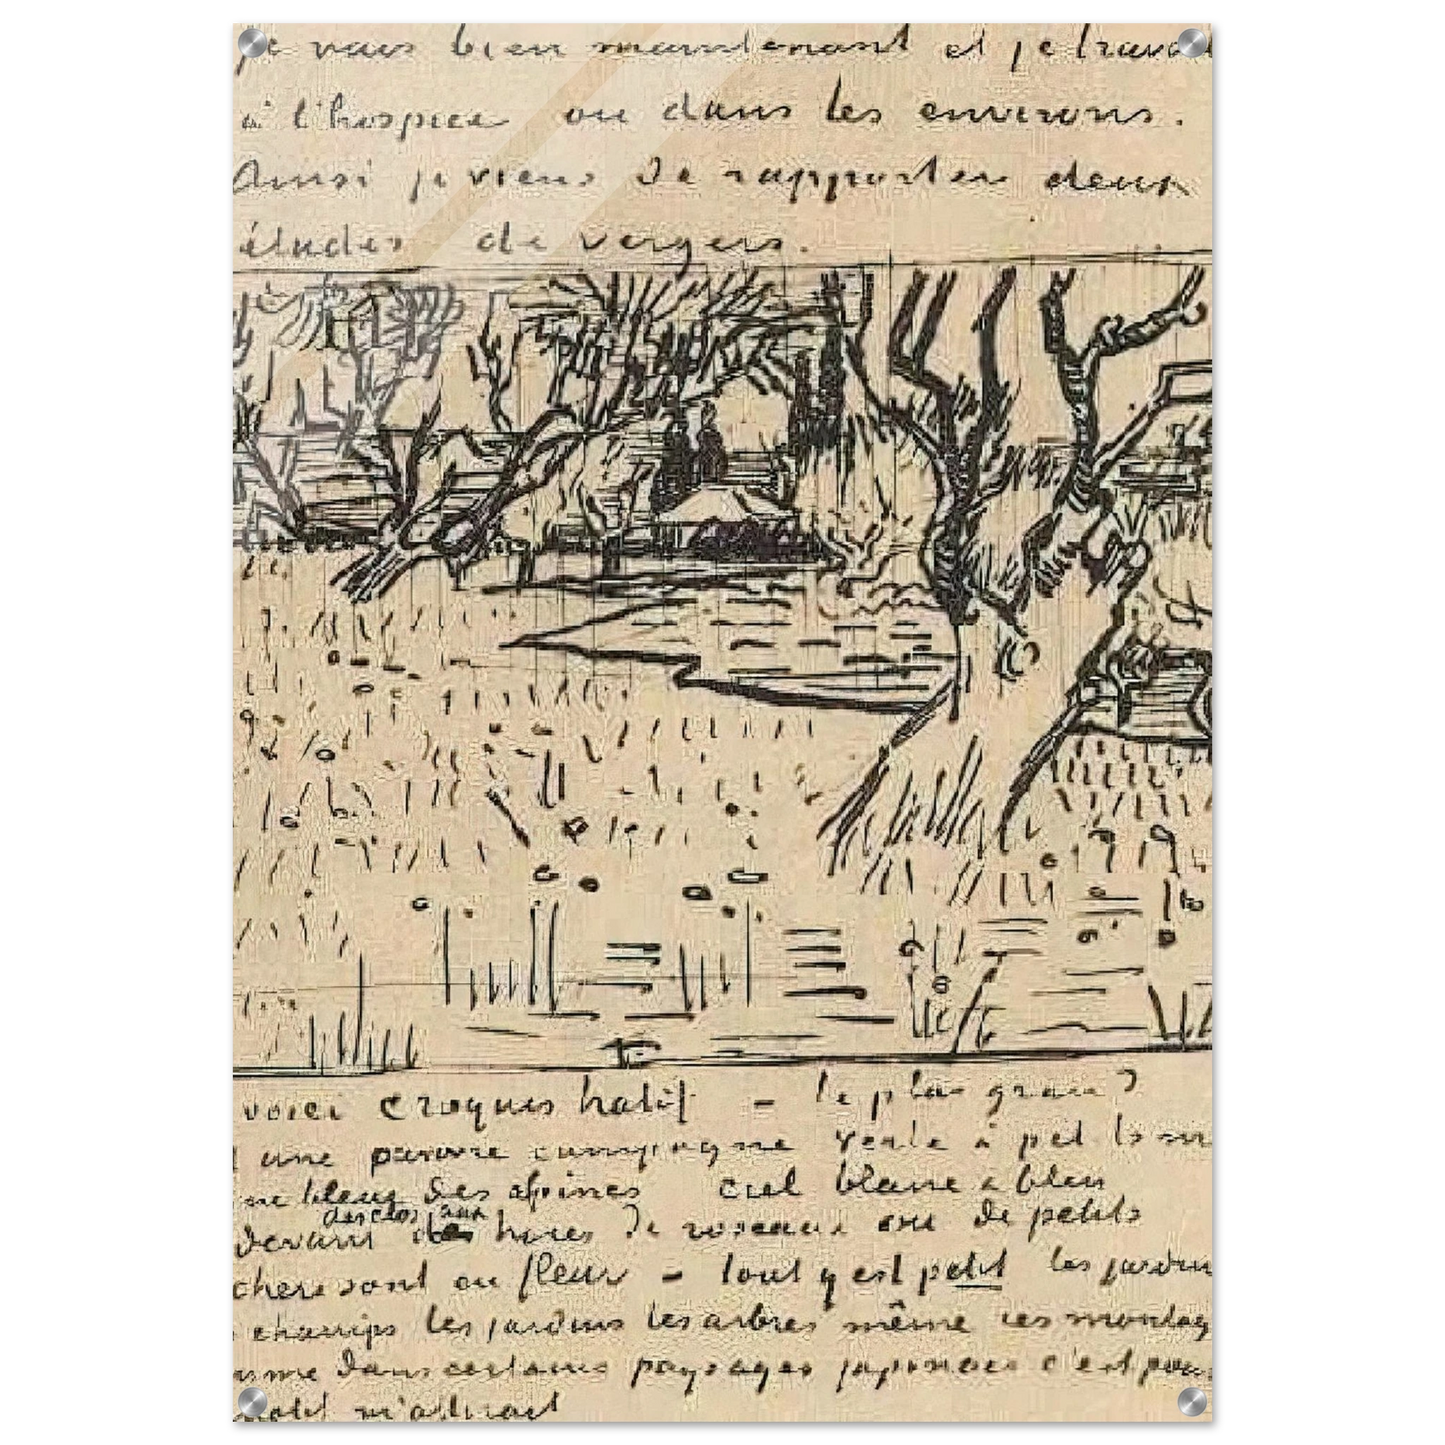 je vais bien maintenant et je travail
à l'hospice ou dans les environs.
Ainsi je viens de rapporter deux
études de vergers.
voici croquis hatif – le plus gran
une pauvre campagne verte à petits
ne bleus des alpines ciel blanc & bleu
des clos aux
devant haies de roseaux ou de petits
chers sont en fleur – tout y est petit les jardins
champs les jardins les arbres même ces montag
mme dans certains paysages japonais c'est pour
motif m'attirait